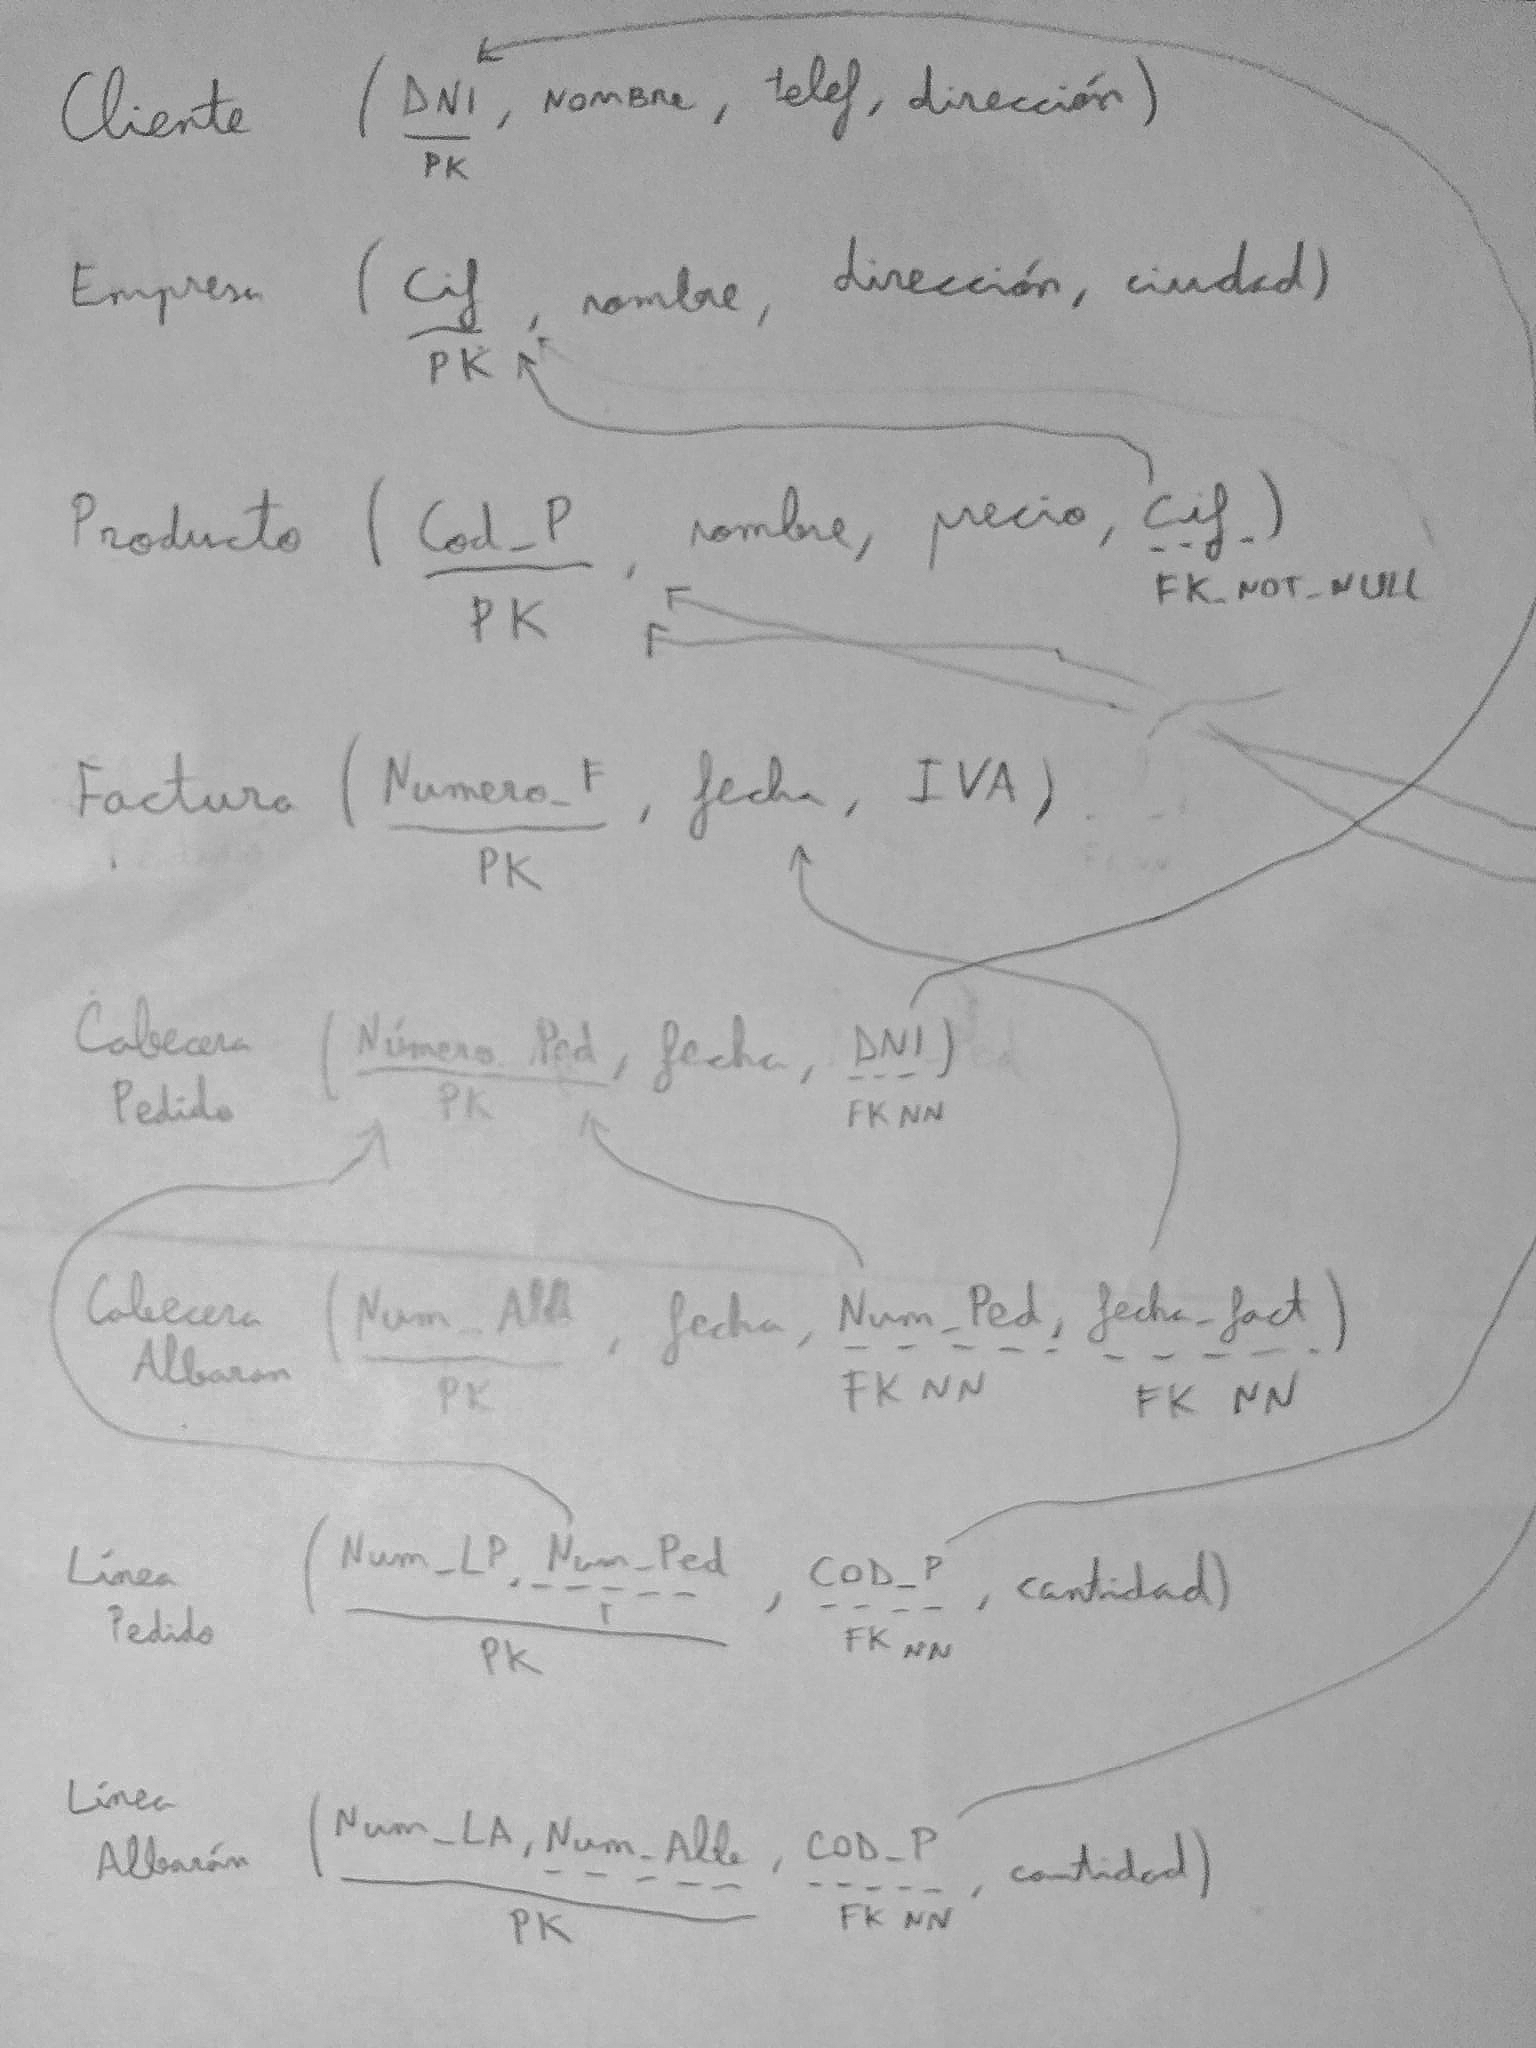 Cliente (DNI, NOMBRE, telef, dirección)
PK
Empresa (Cif, nombre, dirección, ciudad)
PK
Producto (Cod_P, nombre, precio, Cif)
PK FK_NOT_NULL
Factura (Numero_F, fecha, IVA)
PK
Cabecera (Número_Ped, fecha, DNI)
Pedido PK FK NN
Cabecera (Num_Alb, fecha, Num_Ped, fecha_fact)
Albaran PK FK NN FK NN
Línea (Num_LP, Num_Ped, COD_P, cantidad)
Pedido PK FK NN
Línea (Num_LA, Num_Alb, COD_P, cantidad)
Albarán PK FK NN